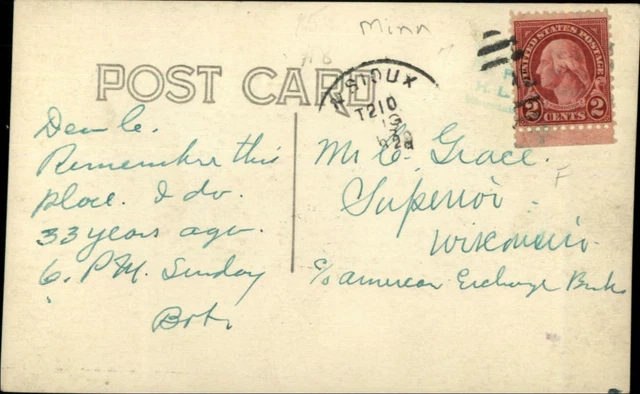 Minn
POST CARD
N SIOUX
T210
UNITED STATES POSTAGE
2 CENTS 2
Dear C.
Remember this
place. I do.
33 years ago.
6. P.M. Sunday
Bob.
Mr C. Grace.
Superior.
Wisconsin.
c/o american Exchange Bank
F